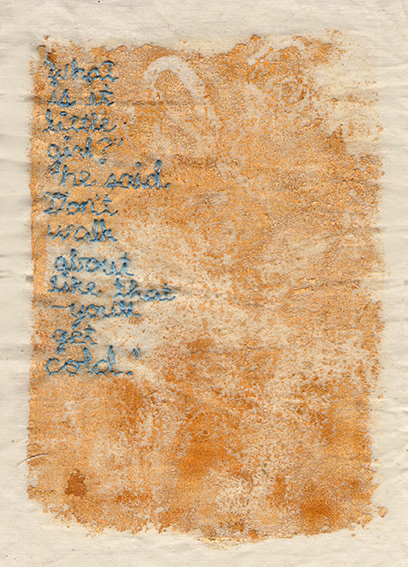 "What
is it
little
girl?"
he said.
Don't
walk
about
like that
you'll
get
cold."